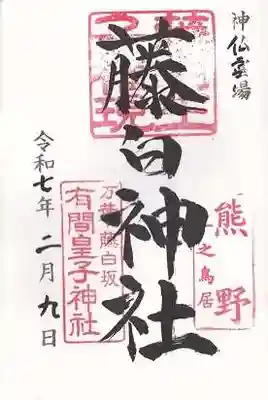 神仏霊場
藤白神社
熊野
之鳥居
万葉藤白坂
有間皇子神社
令和七年二月九日